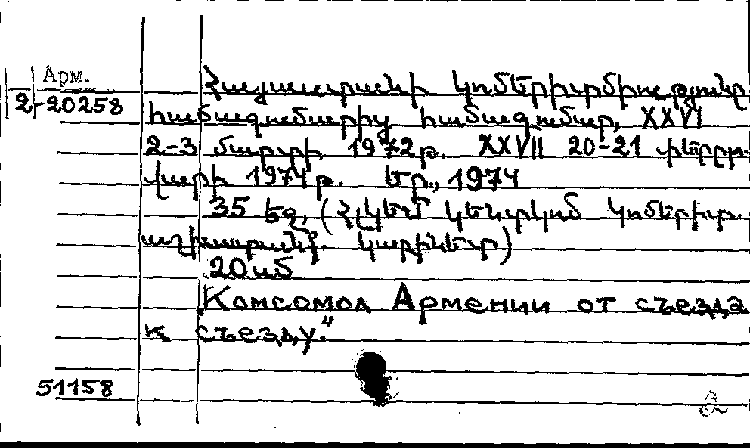 Арм.
2-20258
Հայաստանի կոմերիտմիությունը
համագումարից համագումար, XXVI
2-3 մարտի 1972թ. XXVII 20-21 փետր
վարի 1974թ. Եր., 1974
35 եջ, (ՀԼԿԵՄ կենտկոմ կոմերիտ.
աշխատանք. կաբինետ)
20սմ
Комсомол Армении от съезда
к съезду."
51158